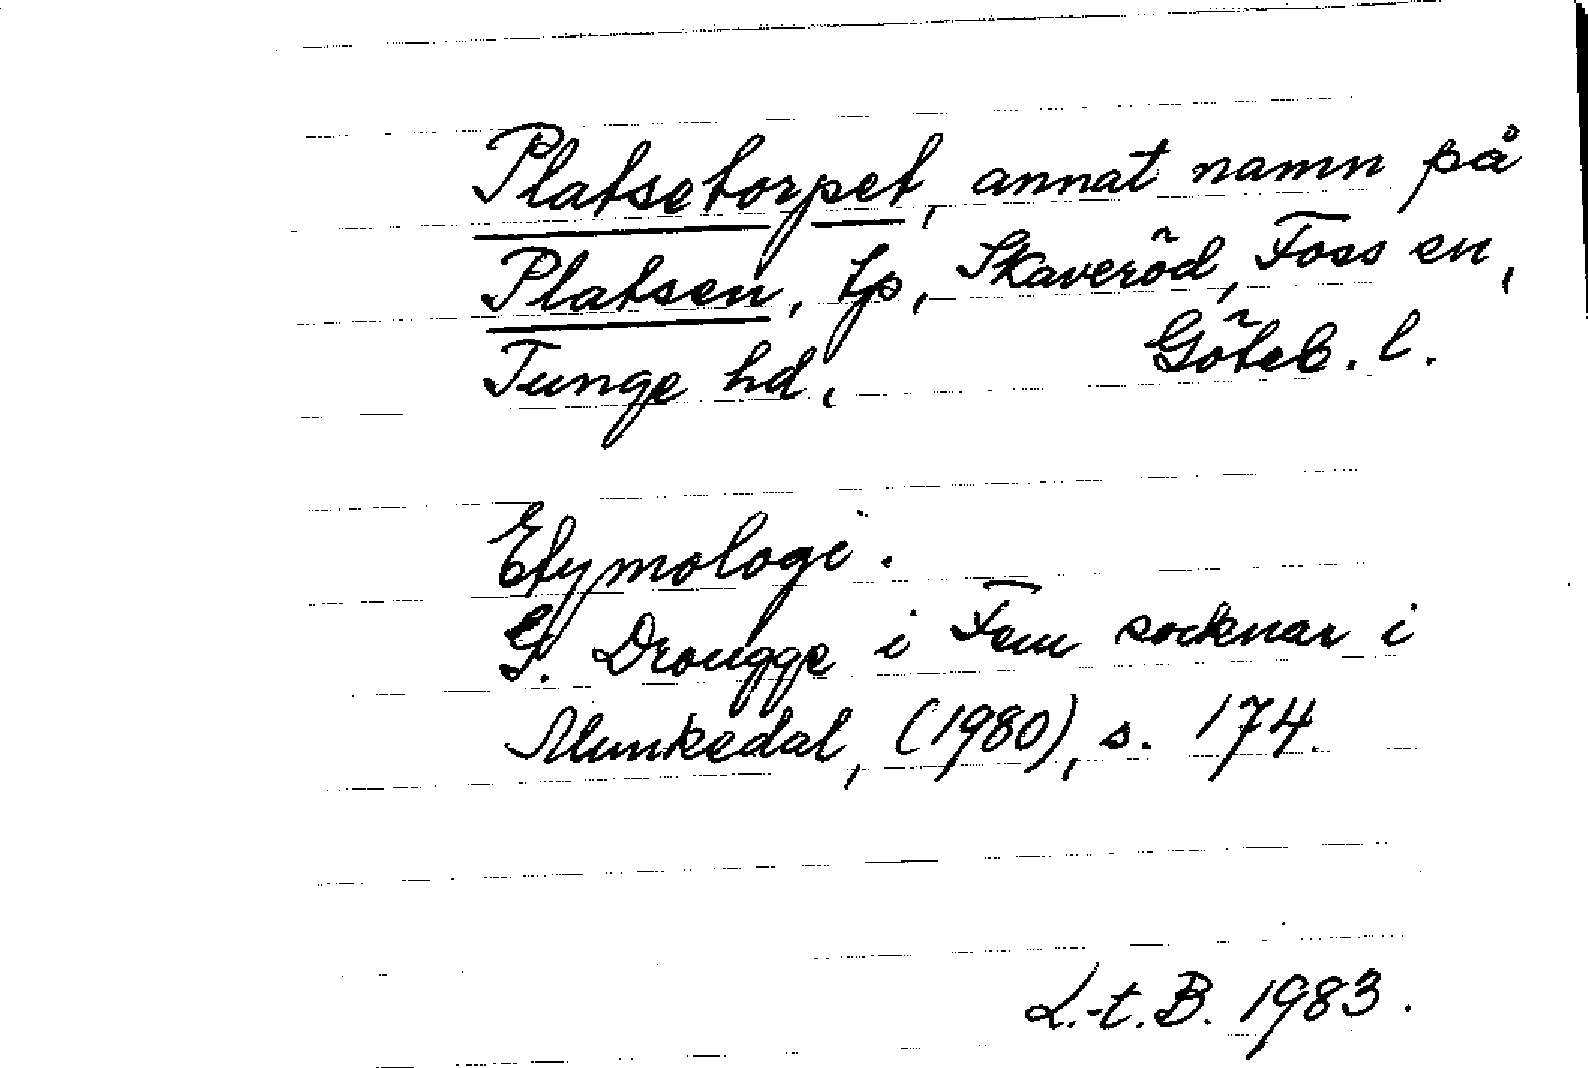 Platsetorpet, annat namn på
Platsen, tp, Skaveröd, Foss sn,
Tunge hd, Göteb. l.
Etymologi.
G. Drougge i Fem socknar i
Munkedal, (1980), s. 174.
L.-t. B. 1983.